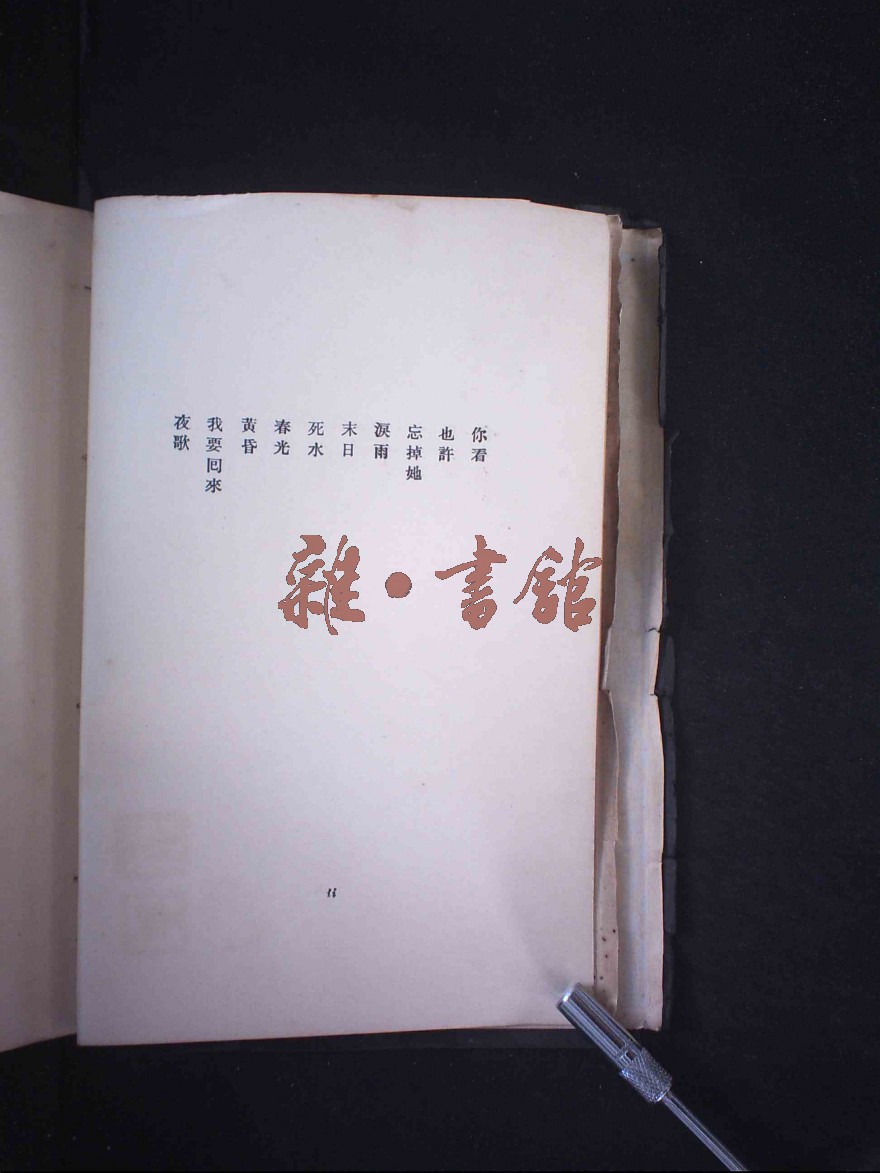 你看
也許
忘掉她
淚雨
末日
死水
春光
黃昏
我要回來
夜歌
雜•書館